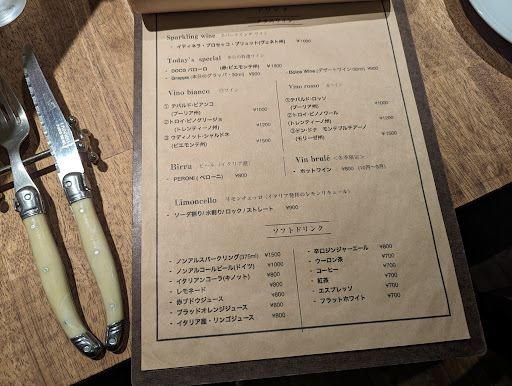 Sparkling wine スパークリングワイン
・イティネラ・プロセッコ・ブリュット(ヴェネト州) ¥1000
Today's special 本日の特選ワイン
・DOCG バローロ (赤:ピエモンテ州) ¥1800
・Grappa (本日のグラッパ・30ml) ¥900
・Dolce Wine (デザートワイン50ml) ¥900
Vino bianco 白ワイン
① テバルド・ビアンコ
(プーリア州) ¥1000
② トロイ・ピノグリージョ
(トレンティーノ州) ¥1200
③ ウディノット・シャルドネ
(ピエモンテ州) ¥1500
Vino rosso 赤ワイン
①テバルド・ロッソ
(プーリア州) ¥1000
②トロイ・ピノノワール
(トレンティーノ州) ¥1200
③ドン・ドナ モンテプルチアーノ
(モリーゼ州) ¥1500
Birra ビール (イタリア産)
・PERONI ( ペローニ) ¥800
Vin brulé <冬季限定>
・ホットワイン ¥800
Limoncello リモンチェッロ (イタリア発祥のレモンリキュール)
・ソーダ割り/ 水割り/ ロック / ストレート ¥900
ソフトドリンク
・ノンアルスパークリング(375ml) ¥1500
・ノンアルコールビール(ドイツ) ¥1000
・イタリアンコーラ(キノット) ¥800
・レモネード ¥800
・赤ブドウジュース ¥800
・ブラッドオレンジジュース ¥800
・イタリア産・リンゴジュース ¥800
・辛口ジンジャーエール ¥800
・ウーロン茶 ¥700
・コーヒー ¥700
・紅茶 ¥700
・エスプレッソ ¥700
・フラットホワイト ¥700